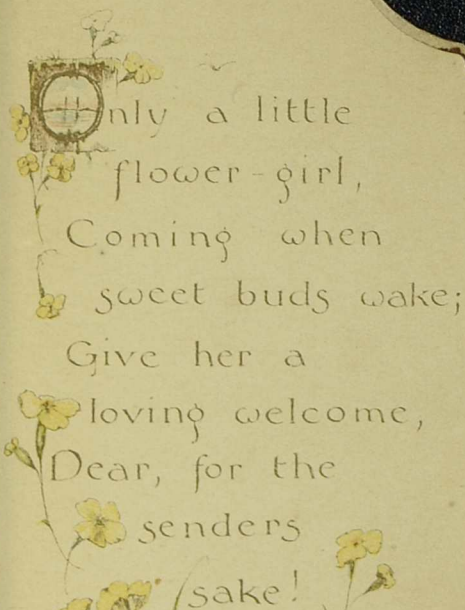 Only a little
flower-girl,
Coming when
sweet buds wake;
Give her a
loving welcome,
Dear, for the
senders
sake!